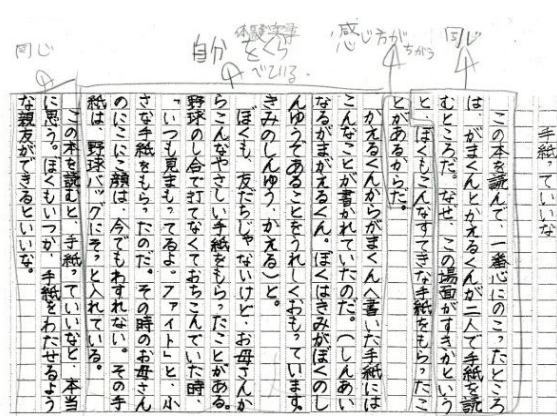 同じ
感じ方が
ちがう
体験
自分
をくら
べている。
同じ
手紙っていいな
この本を読んで、一番心にのこったところ
は、がまくんとかえるくんが二人で手紙を読
むところだ。なぜ、この場面がすきかという
と、ぼくもこんなすてきな手紙をもらったこ
とがあるからだ。
かえるくんからがまくんへ書いた手紙には
こんなことが書かれていたのだ。（しんあい
なるがまがえるくん。ぼくはきみがぼくのし
んゆうであることをうれしくおもっています。
きみのしんゆう、かえる）と。
ぼくも、友だちじゃないけど、お母さんか
らこんなやさしい手紙をもらったことがある。
野球のし合で打てなくておちこんでいた時、
「いつも見まもってるよ。ファイト」と、小
さな手紙をもらったのだ。その時のお母さん
のにこにこ顔は、今でもわすれない。その手
紙は、野球バッグにそっと入れている。
この本を読むと、手紙っていいなと、本当
に思う。ぼくもいつか、手紙をわたせるよう
な親友ができるといいな。